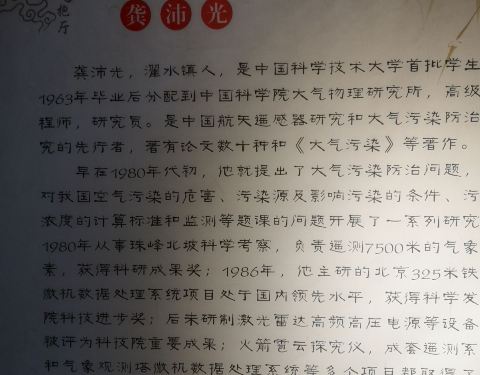 艳厅
龚沛光
龚沛光，濯水镇人，是中国科学技术大学首批学生
1963年毕业后分配到中国科学院大气物理研究所，高级
程师，研究员。是中国航天遥感器研究和大气污染防治
究的先行者，著有论文数十种和《大气污染》等著作。
早在1980年代初，他就提出了大气污染防治问题，
对我国空气污染的危害、污染源及影响污染的条件、污
浓度的计算标准和监测等题课的问题开展了一系列研究
1980年从事珠峰北坡科学考察，负责遥测7500米的气象
素，获得科研成果奖；1986年，他主研的北京325米铁
微机数据处理系统项目处于国内领先水平，获得科学发
院科技进步奖；后来研制激光雷达高频高压电源等设备
被评为科技院重要成果；火箭雹云探究仪，成套遥测系
和气象观测塔微机数据处理系统等多个项目都取得了